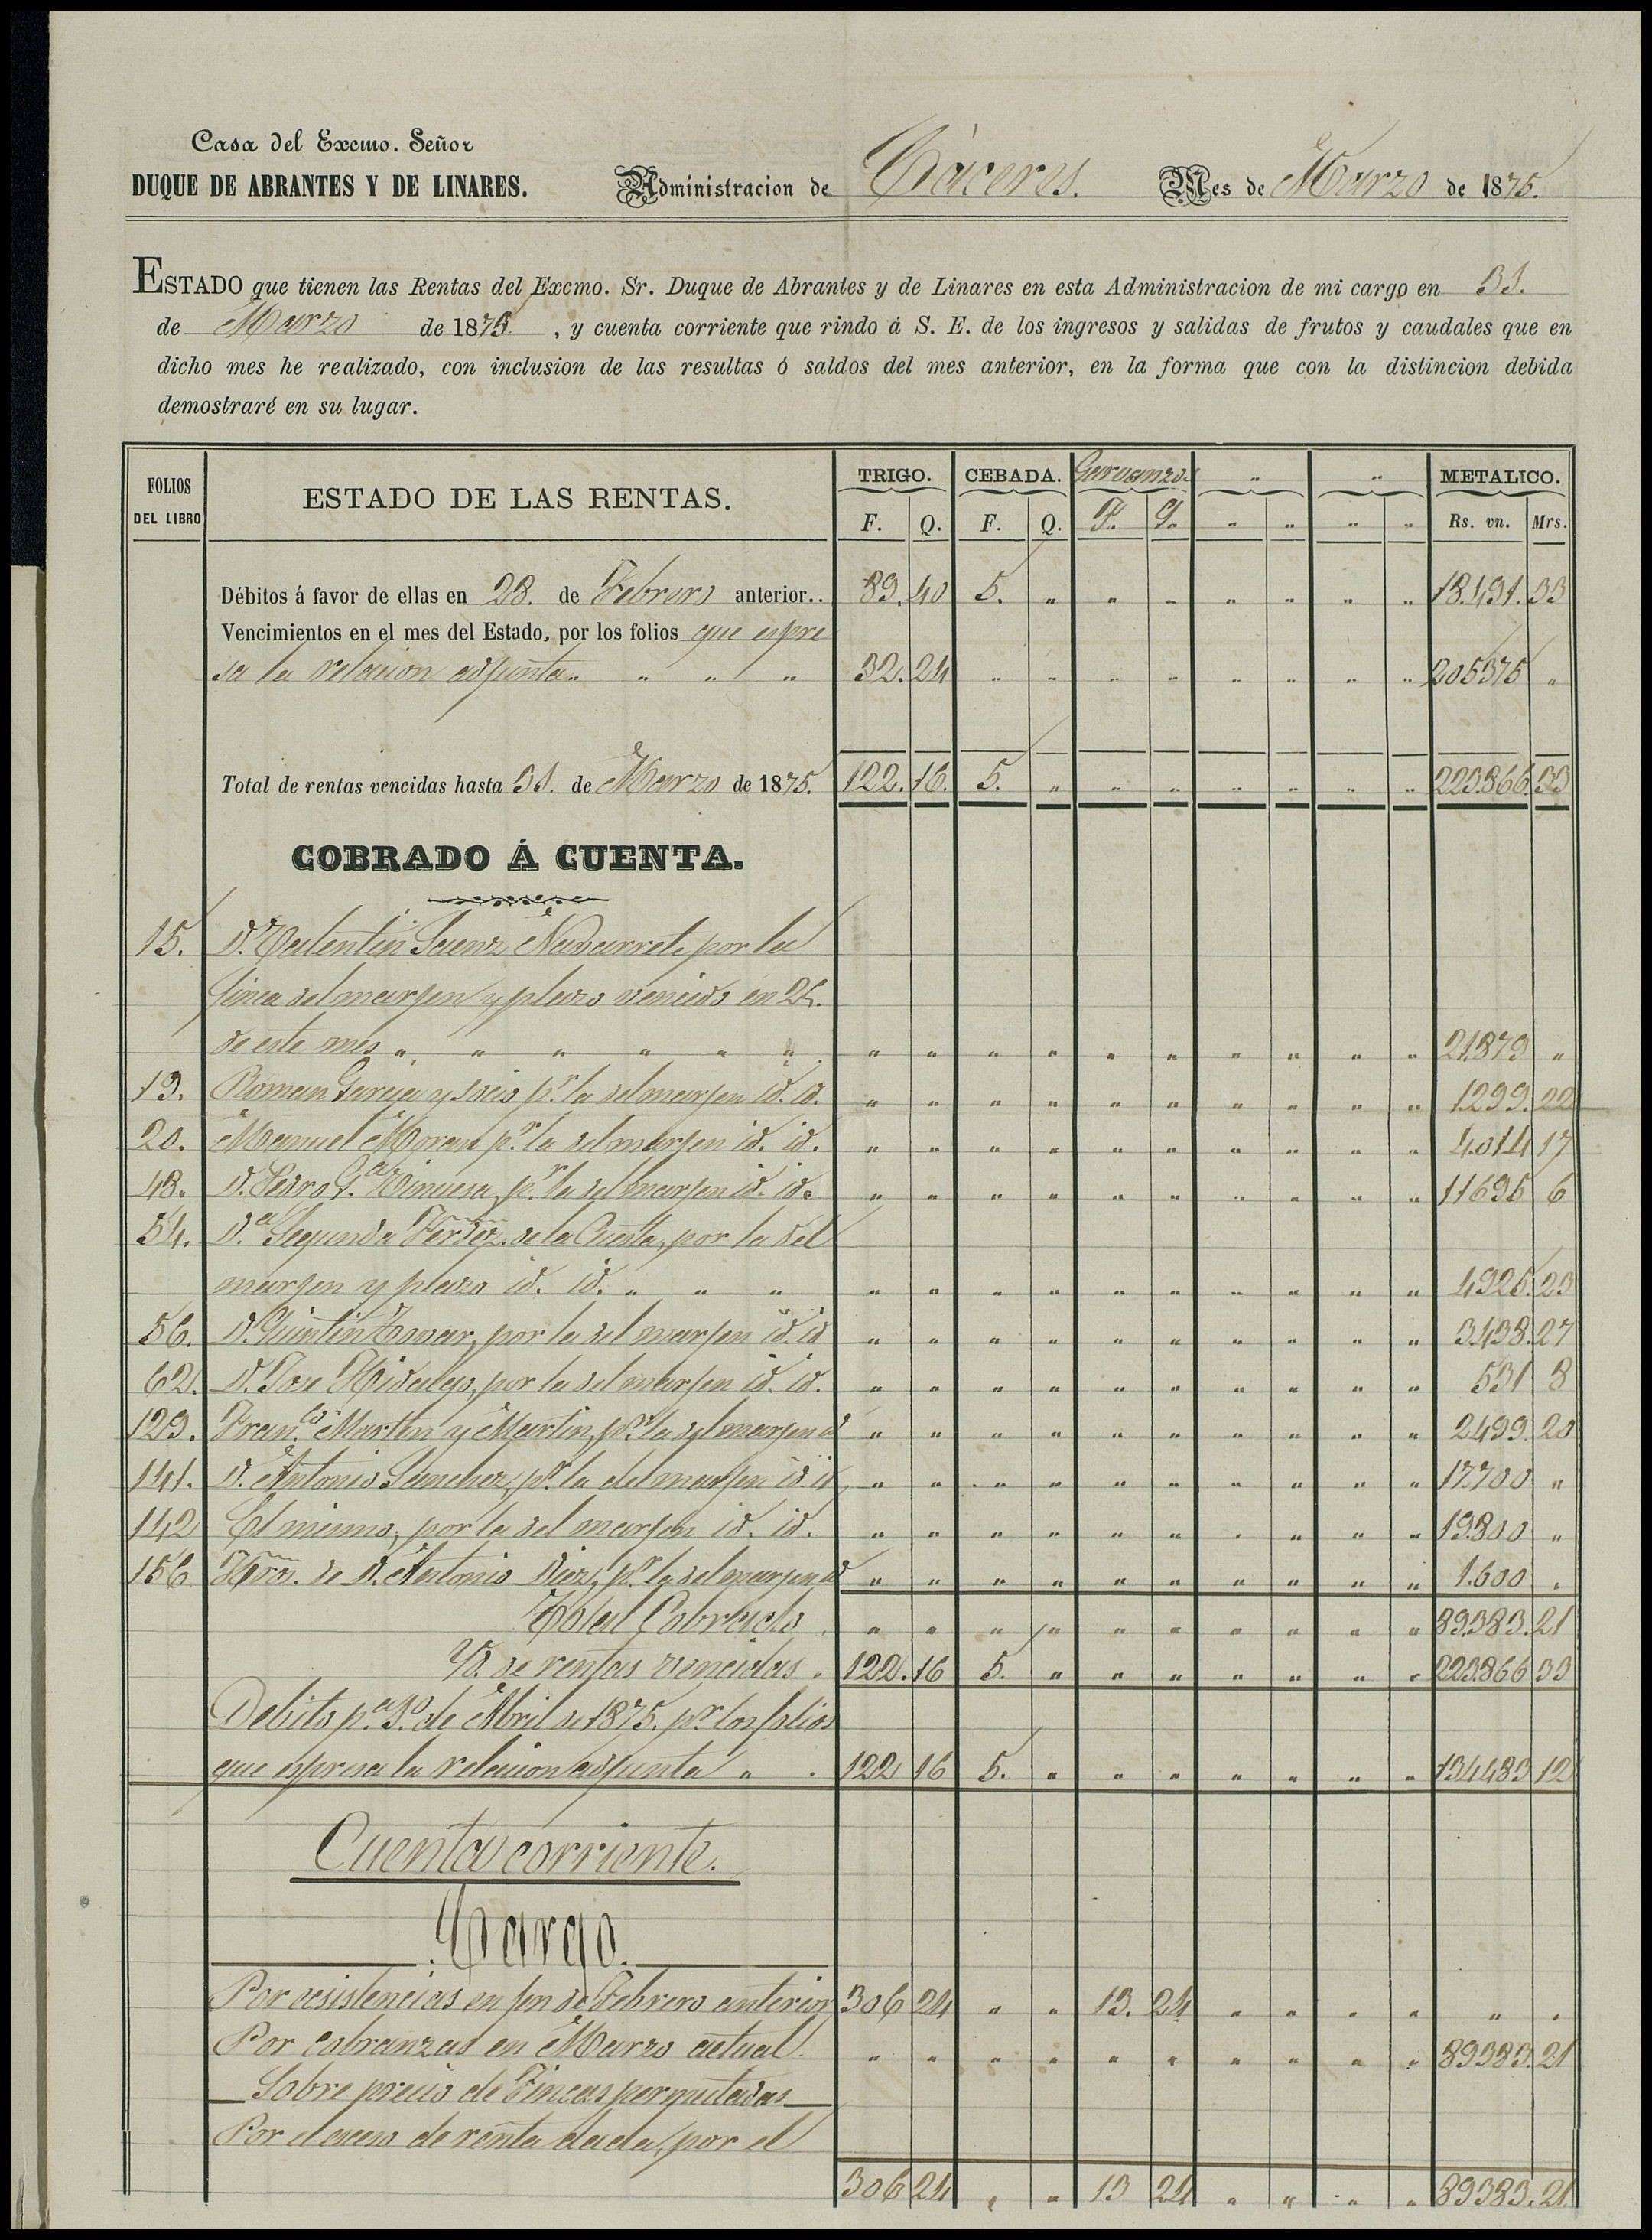 Casa del Excmo. Señor
DUQUE DE ABRANTES Y DE LINARES.
Administracion de Cáceres. Mes de Marzo de 1875.
ESTADO que tienen las Rentas del Excmo. Sr. Duque de Abrantes y de Linares en esta Administracion de mi cargo en 31.
de Marzo de 1875, y cuenta corriente que rindo á S. E. de los ingresos y salidas de frutos y caudales que en
dicho mes he realizado, con inclusion de las resultas ó saldos del mes anterior, en la forma que con la distincion debida
demostraré en su lugar.
FOLIOS DEL LIBRO ESTADO DE LAS RENTAS. TRIGO. CEBADA. Garvanzos " " METALICO.
F. Q. F. Q. F. Q. " " " " Rs. vn. Mrs.
Débitos á favor de ellas en 28. de Febrero anterior.. 89. 40 5. " " " " " " " 18.491. 33
Vencimientos en el mes del Estado, por los folios que espre
sa la relacion adjunta " " " " 32. 24 " " " " " " " " 205375 "
Total de rentas vencidas hasta 31. de Marzo de 1875. 122. 16. 5. " " " " " " " 223.866. 33
COBRADO Á CUENTA.
15. D. Valentin Saenz Navarrete por la
finca del marjen y plazo vencido en 25.
de este mes " " " " " " " " " " " " " " " " 21.879 "
19. Roman Garcia y socio pr. la del marjen id. id. " " " " " " " " " " 1.299. 22
20. Manuel Moran pr. la del marjen id. id. " " " " " " " " " " 4.014 17
48. D. Pedro G.a Vinuesa, pr. la del marjen id. id. " " " " " " " " " " 11695 6
54. D.a Segunda Fernz. de la Cuesta, por la del
marjen y plazo id. id. " " " " " " " " " " " " " 4925. 23
56. D. Quintin Tovar, por la del marjen id. id " " " " " " " " " " 3.438. 27
62. D. Jose Hidalgo, por la del marjen id. id. " " " " " " " " " " 531 8
129. Franco. Martin y Martin, pr. la del marjen id " " " " " " " " " " 2499. 20
141. D. Antonio Sanchez, pr. la del marjen id. id " " " " " " " " " " 17.700 "
142 El mismo, por la del marjen id. id. " " " " " " " " " " 19.800 "
156 de D. Antonio Diez, pr. la del marjen id " " " " " " " " " " 1.600 "
Total Cobrado. " " " " " " " " " " 89.383. 21
Yd. de rentas vencidas. 122. 16 5. " " " " " " " 223.866 33
Debito pa. 1o. de Abril de 1875. pr. los folios
que espresa la relacion adjunta " . 122 16 5. " " " " " " " 134483 12
Cuenta corriente.
Cargo.
Por ecsistencias en fin de Febrero anterior 306 24 " " 13. 24 " " " " " "
Por cobranzas en Marzo actual. " " " " " " " " " " 89383. 21
Sobre precio de Fincas permutadas
Por el esceso de renta dada, por el
306 24 " " 13 24 " " " " 89383. 21